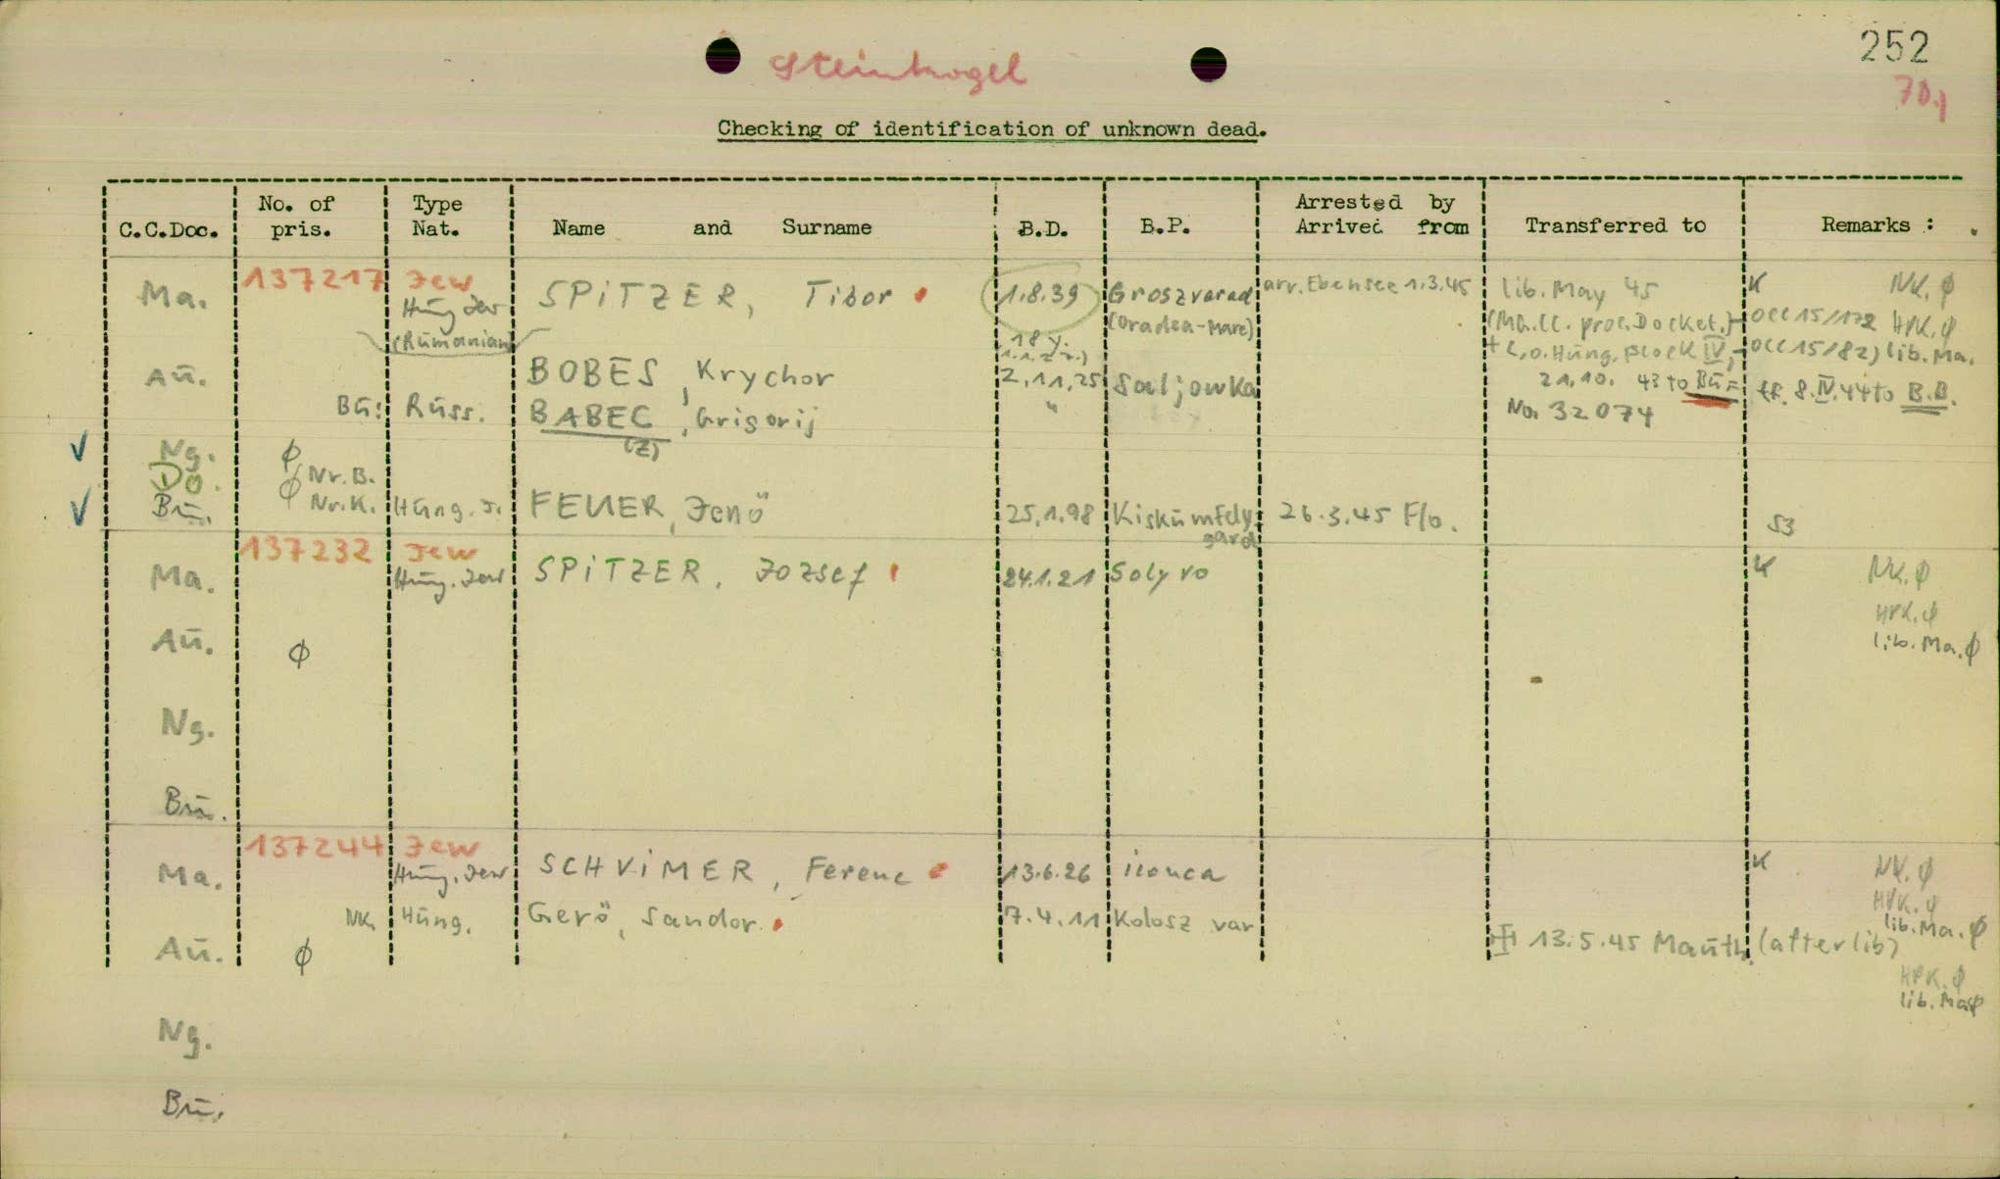 Steinkogel
252
70,
Checking of identification of unknown dead.
C.C.Doc. No. of pris. Type Nat. Name and Surname B.D. B.P. Arrested by Arrived from Transferred to Remarks :
137217 Jew
Ma. Hung Jew SPiTZER, Tibor 1.8.39 Groszvarad arr. Ebensee 1.3.45 lib. May 45 K NK. φ
(Rumanian) (Oradea-Mare) (Ma.CC. proc. Docket.) OCC 15/172 HPK. φ
18 y. + L.o. Hung. Block IV, OCC 15/82) lib. Ma.
Au. BOBES, Krychor 2.11.25 Saljowka 21.10. 43 to Bu= tr. 8.IV.44 to B.B.
Bu: Russ. BABEC, Grigorij " No. 32074
(Z)
Ng. φ
Do. φ Nr. B.
Bu. φ Nr. K. Hung. J. FEUER, Jenö 25.1.98 Kiskumfely 26.3.45 Flo. S3
137232 Jew
Ma. Hung. Jew SPiTZER, Jozsef 24.1.21 Solyvo K NK. φ
HPK. φ
Au. φ lib. Ma. φ
Ng.
Bu.
137244 Jew
Ma. Hung. Jew SCHViMER, Ferenc 13.6.26 ilonca K NK. φ
HPK. φ
NK. Hung. Gerö, Sandor. 7.4.11 Kolosz var lib. Ma. φ
Au. φ 13.5.45 Mauth. (after lib)
HPK. φ
lib. Ma φ
Ng.
Bu.